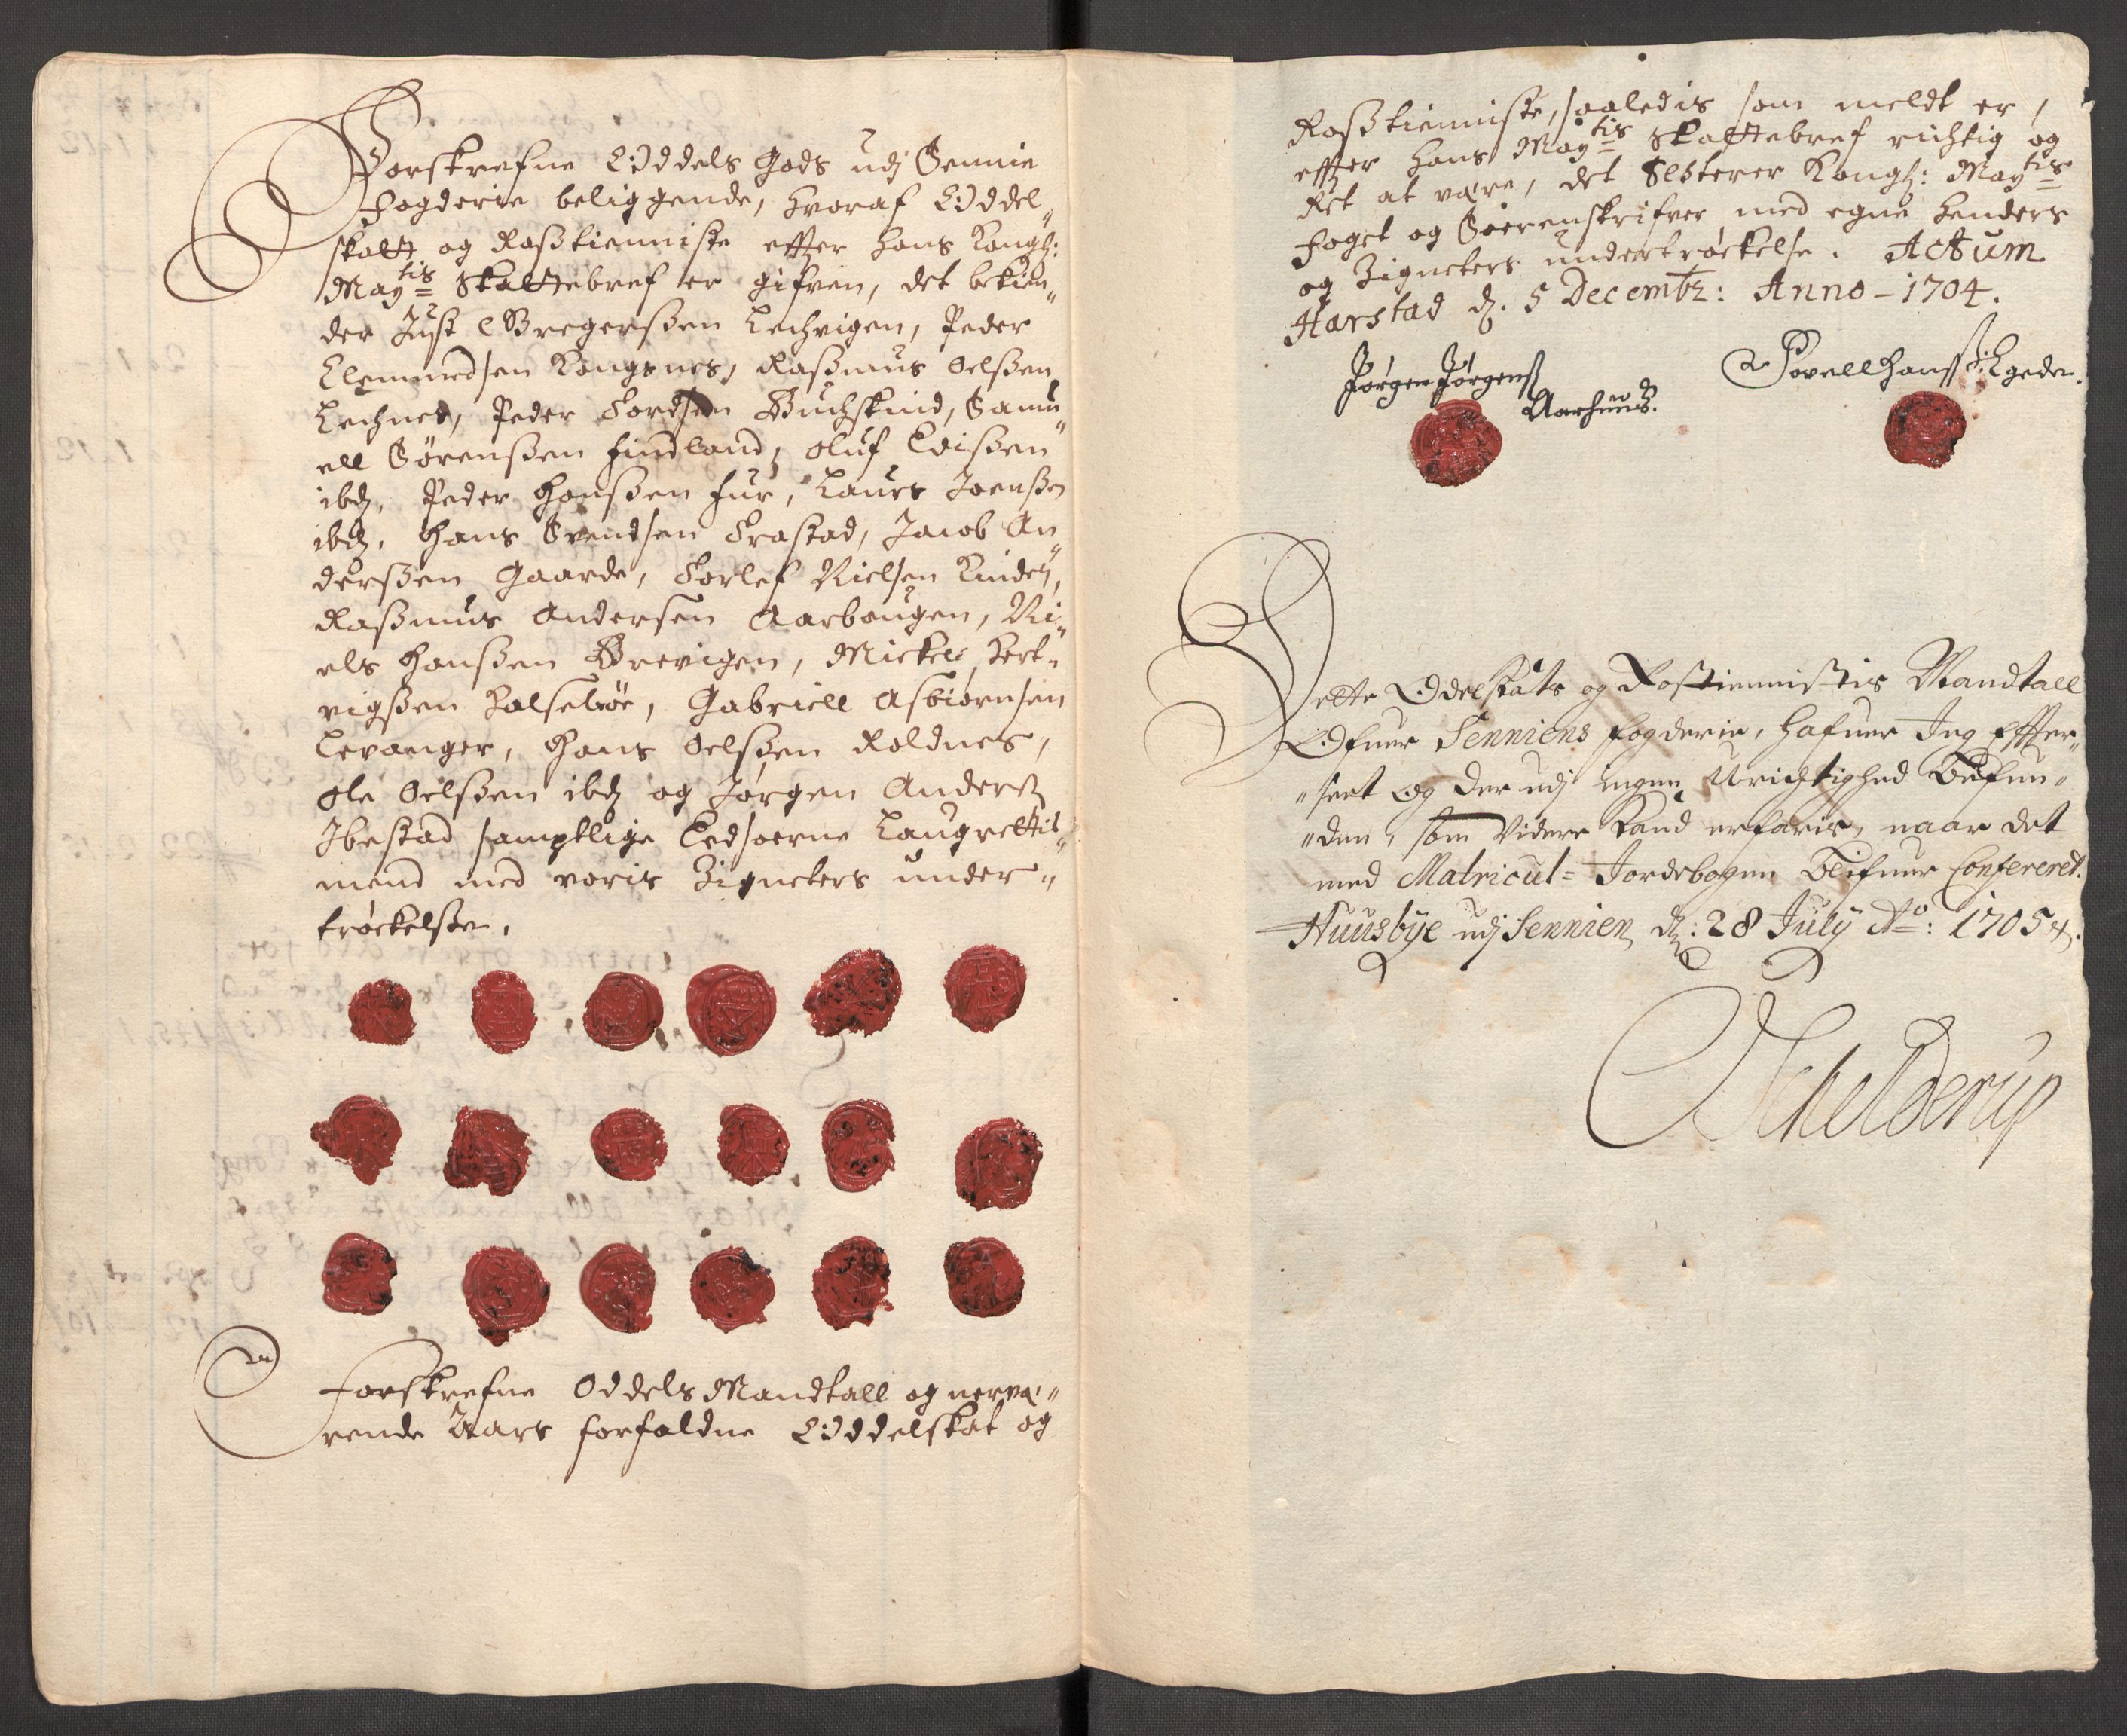 Forskrefne Oddels Gods udj Sennie
fogderie beliggende, hvoraf Oddel„
skatt og Rosstienniste effter hans Kongl:
Maytis Skattebref er gifven, det bekien„
der Just Gregerssen Lechvigen, Peder
Clemmedsen Kongsnes, Rassmus Oelssen
Lechnes, Peder Tordsen Buchskind, Samu„
ell Sørenssen Findland, Oluf Edissen
ibd, Peder Hanssen Fur, Laurs Joenssen
ibd, Hans Svendsen Trastad, Jacob An„
derssen Gaarde, Torlef Nielsen Kinden,
Rassmus Andersen Aarbougen, Ni„
els Hanssen Brevigen, Mickel Hert„
vigssen Kalsebøe, Gabriell Asbiørnsen
Levanger, Hans Oelssen Roldnes,
Ole Oelssen ibd og Jørgen Anderss
Ibestad samptlige Eedsoerne Laugrettis„
mend med voris Zigneters under„
trøckelssen.
Forskrefne Oddels Mandtall og nerva„
rende Aars forfaldne Oddelskat og
Rosstienniste, saaledis som meldt er,
effter hans Maytis Skattebref richtig og
Ret at være, det Attesterer Kongl: Maytis
foget og Soerenskrifver med egne hender
og Zigneters undertrøckelse. Actum
Harstad d. 5 Decembr: Anno - 1704.
Jørgen Jørgens
Aarhuus.
Povell Hanss: Egede.
Dette Odelskats og Rostiennistis Mandtall
Ofuer Senniens fogderie, hafuer Jeg Effter„
„seet Og der udj ingen Urichtighed Befun„
„den, som Videre kand erfaris, naar det
med Matricul= Jordebogen blifuer Confereret.
Huusbye udj Sennien d: 28 July Ao: 1705.
Schelderup